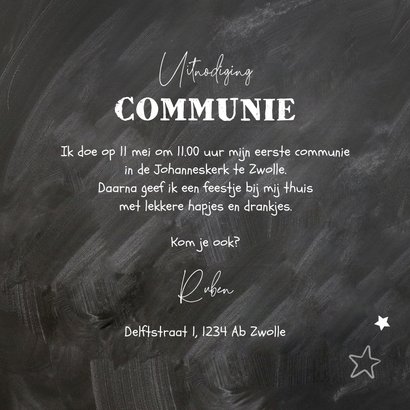 Uitnodiging
COMMUNIE
Ik doe op 11 mei om 11.00 uur mijn eerste communie
in de Johanneskerk te Zwolle.
Daarna geef ik een feestje bij mij thuis
met lekkere hapjes en drankjes.
Kom je ook?
Ruben
Delftstraat 1, 1234 Ab Zwolle